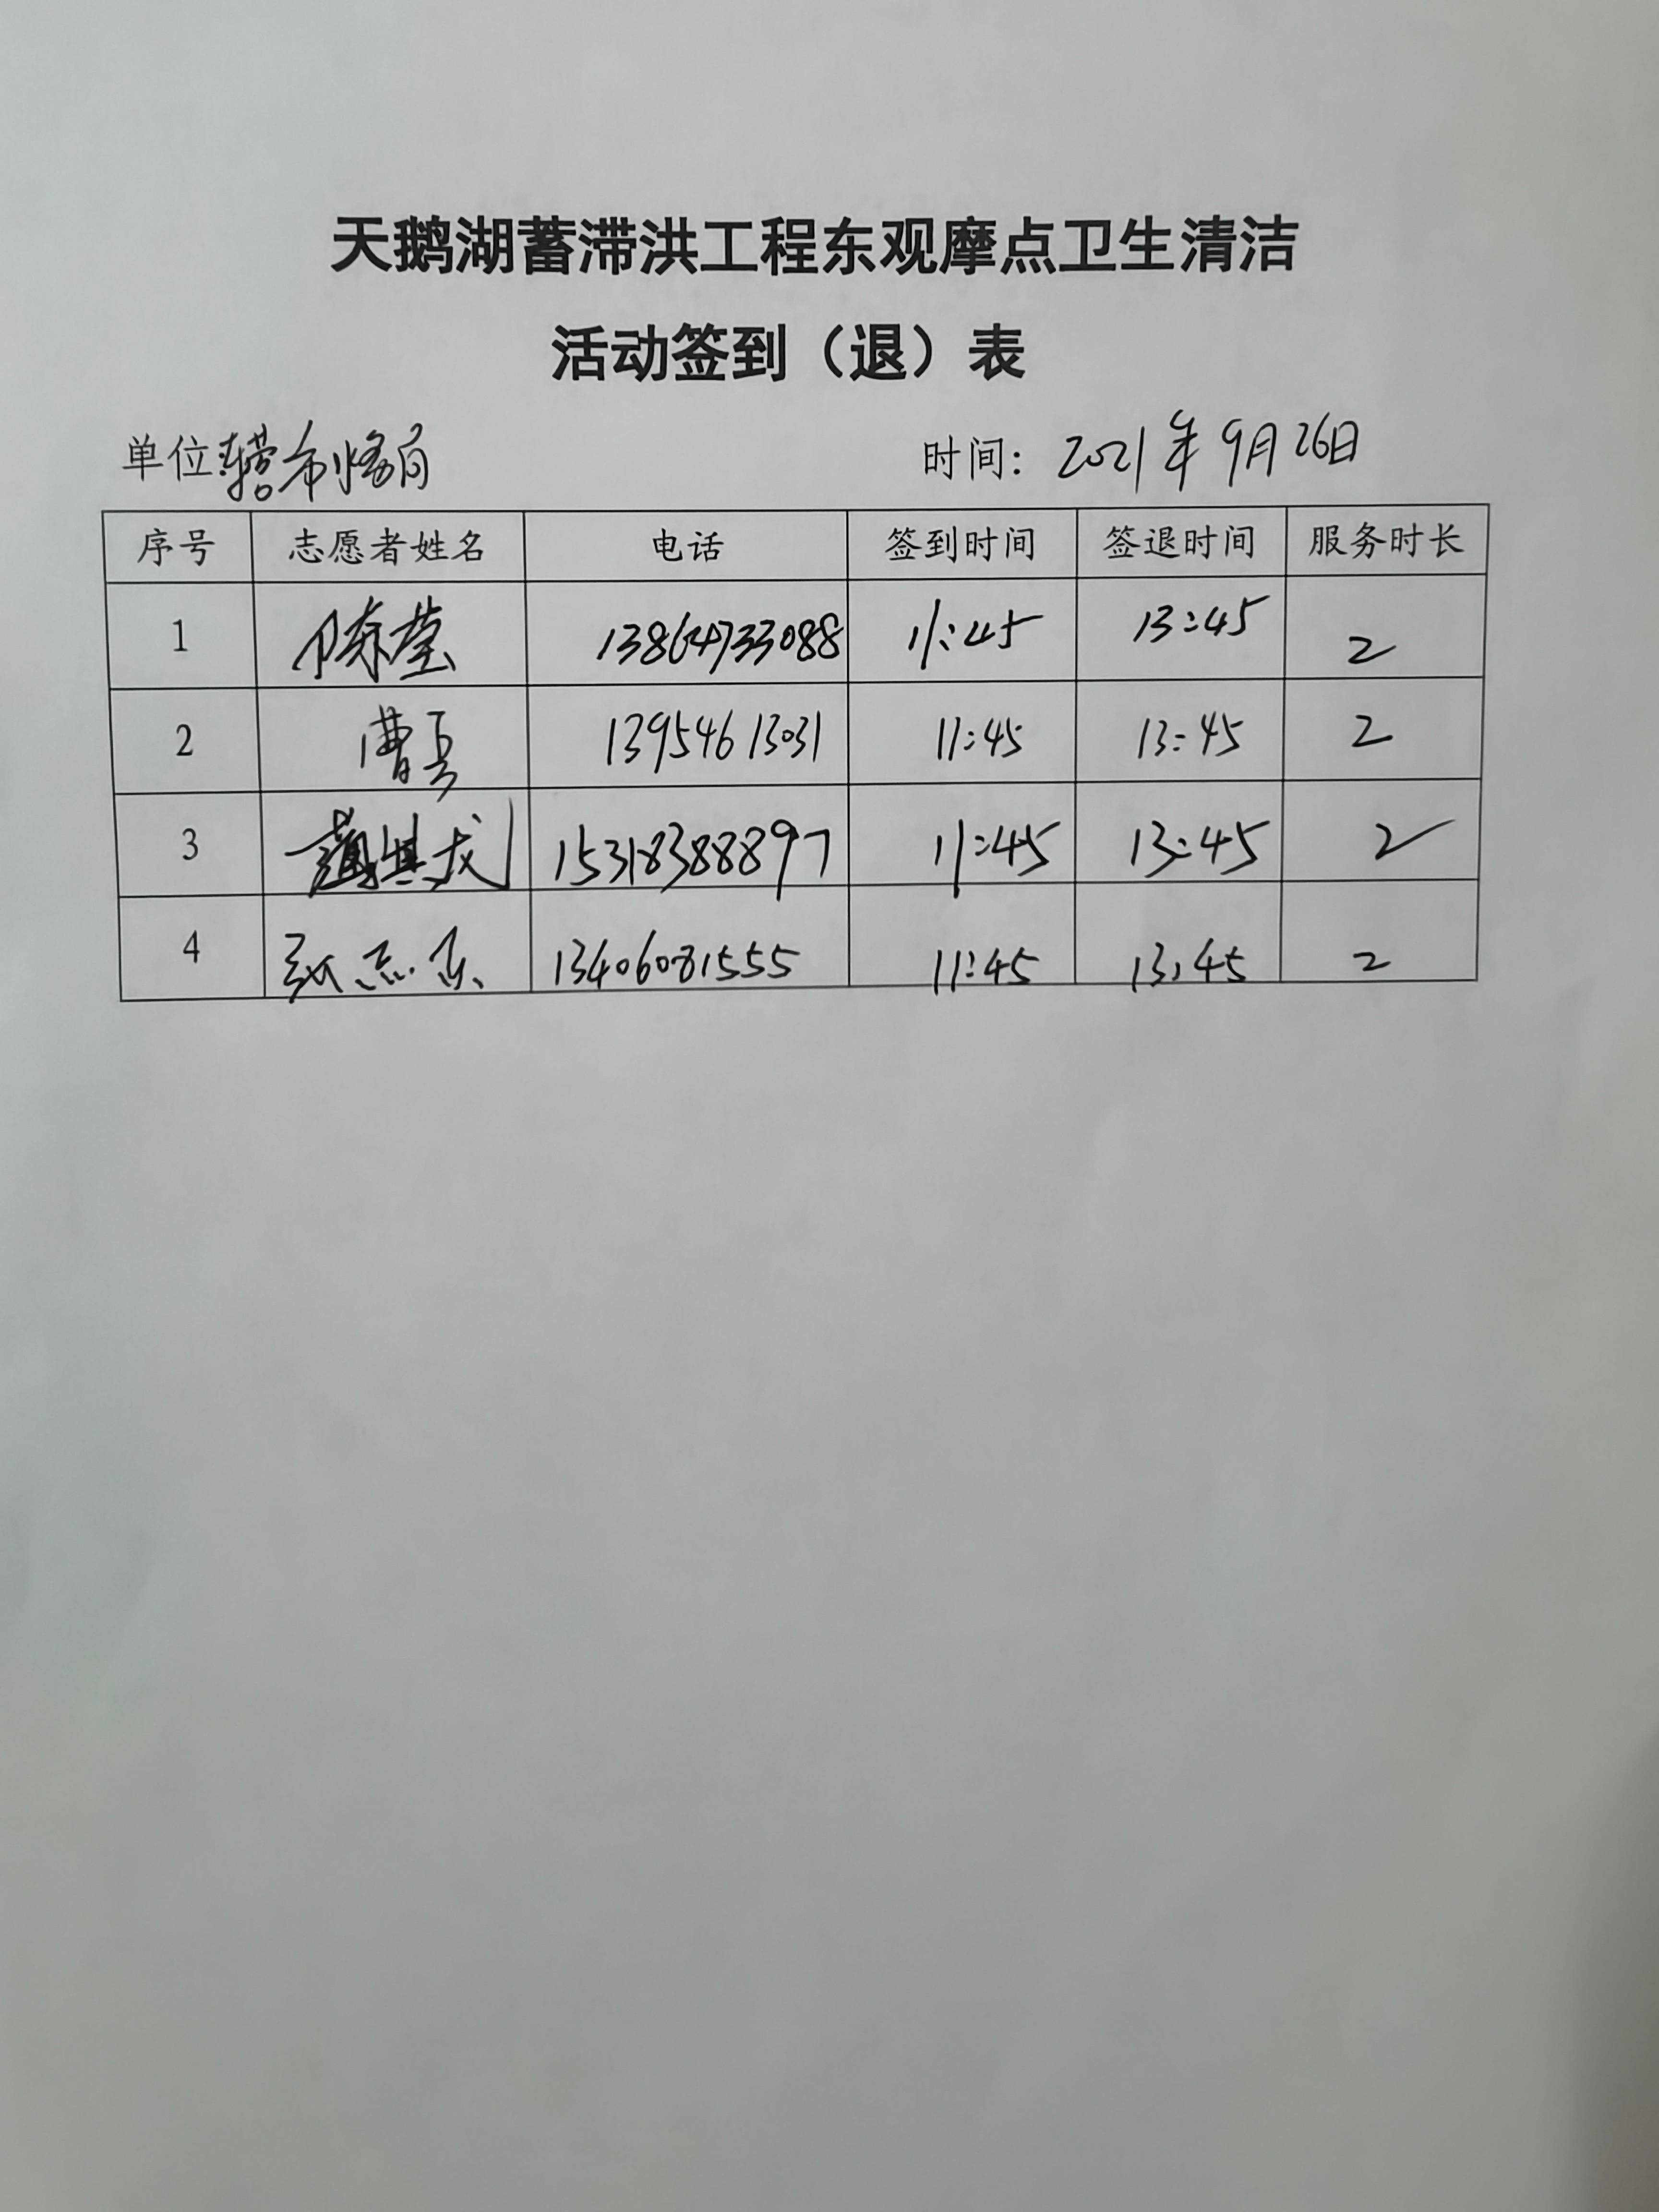 天鹅湖蓄滞洪工程东观摩点卫生清洁
活动签到（退）表
单位 时间：2021年9月26日
序号 志愿者姓名 电话 签到时间 签退时间 服务时长
1 陈莹 13864733088 11:45 13:45 2
2 曹 13954613031 11:45 13:45 2
3 15318388897 11:45 13:45 2
4 13406081555 11:45 13:45 2